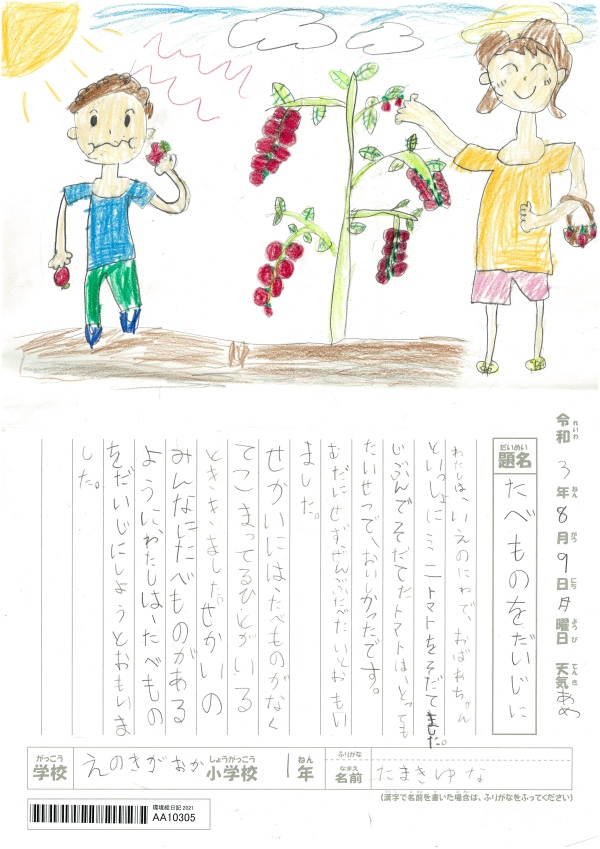 令和3年8月9日月曜日 天気あめ
れいわ ねん がつ にち ようび てんき
だいめい
題名
たべものをだいじに
わたしは、いえのにわで、おばあちゃん
といっしょにミニトマトをそだてました。
じぶんでそだてたトマトは、とっても
たいせつで、おいしかったです。
むだにせず、ぜんぶたべたいとおもい
ました。
せかいには、たべものがなく
てこまってるひとがいる
とききました。せかいの
みんなにたべものがある
ように、わたしは、たべもの
をだいじにしようとおもいま
した。
がっこう しょうがっこう ねん
学校 えのきがおか小学校 1年
ふりがな
なまえ
名前 たまきゆな
(漢字で名前を書いた場合は、ふりがなをふってください)
環境絵日記 2021
AA10305